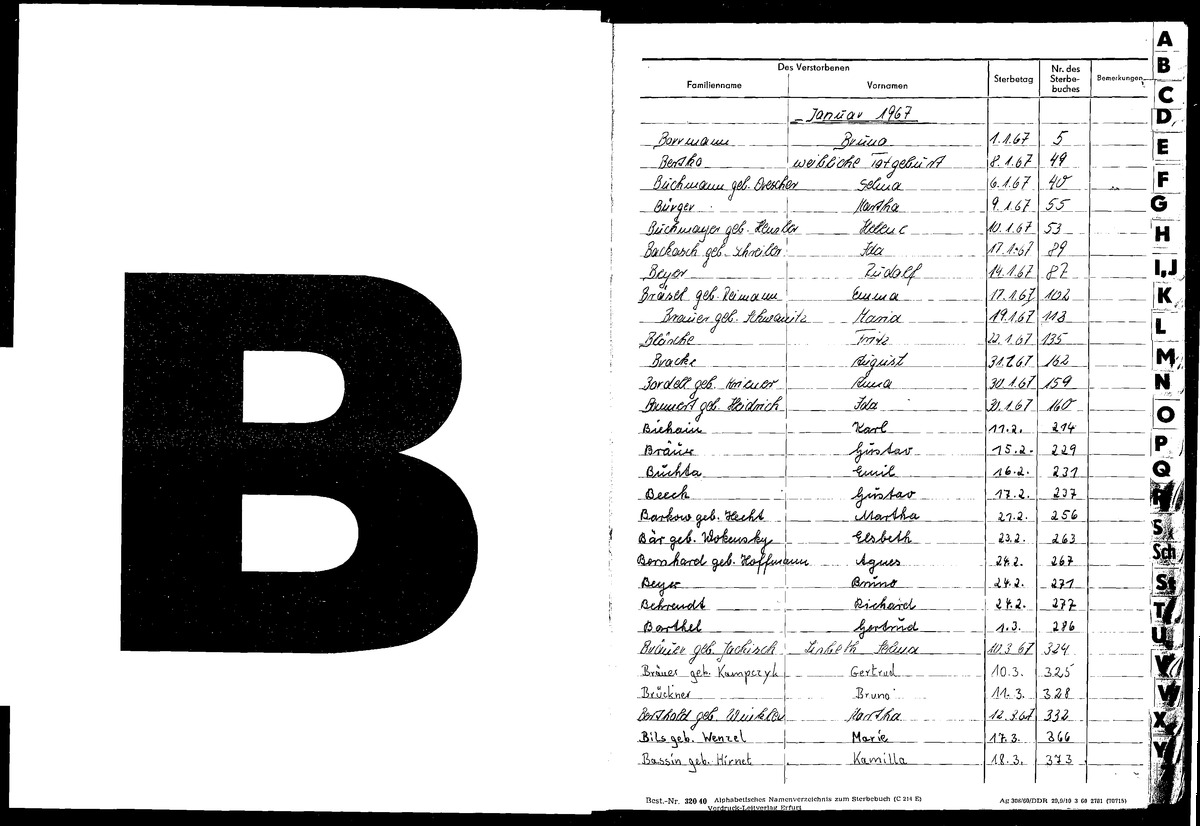 B
Des Verstorbenen
Familienname Vornamen Sterbetag Nr. des Sterbe-buches Bemerkungen
Januar 1967
Borrmann Bruno 1.1.67 5
Bertko weibliche Totgeburt 8.1.67 49
Buchmann geb. Drescher Selma 6.1.67 40
Bürger Martha 9.1.67 55
Buchmayer geb. Helene 10.1.67 53
Balkasch geb. Schreiber Ida 17.1.67 89
Beyer Rudolf 14.1.67 87
Bräsel geb. Reimann Emma 17.1.67 102
Brauer geb. Schwanitz Maria 19.1.67 118
Bläsche Fritz 22.1.67 135
Bracke August 31.1.67 162
Bordell geb. Anna 30.1.67 159
Bannert geb. Heidrich Ida 30.1.67 160
Biehain Karl 11.2. 214
Bräuer Gustav 15.2. 229
Buchta Emil 16.2. 231
Beeck Gustav 17.2. 237
Barkow geb. Hecht Martha 21.2. 256
Bär geb. Wokensky Elsbeth 23.2. 263
Bernhard geb. Hoffmann Agnes 24.2. 267
Beyer Bruno 24.2. 271
Behrendt Richard 24.2. 277
Barthel Gertrud 1.3. 286
geb. Jackisch Selma 10.3.67 324
Bräuer geb. Kampczyk Gertrud 10.3. 325
Brückner Bruno 11.3. 328
Berthold geb. Winkler Martha 12.3.67 332
Bils geb. Wenzel Marie 17.3. 366
Bassin geb. Hirnet Kamilla 18.3. 373
Best.-Nr. 320 40 Alphabetisches Namenverzeichnis zum Sterbebuch (C 214 E)
Vordruck-Leitverlag Erfurt
Ag 306/60/DDR 29,9/10 3 60 2781 (70715)
A
B
C
D
E
F
G
H
I,J
K
L
M
N
O
P
Q
R
S
Sch
St
T
U
V
W
X
Y